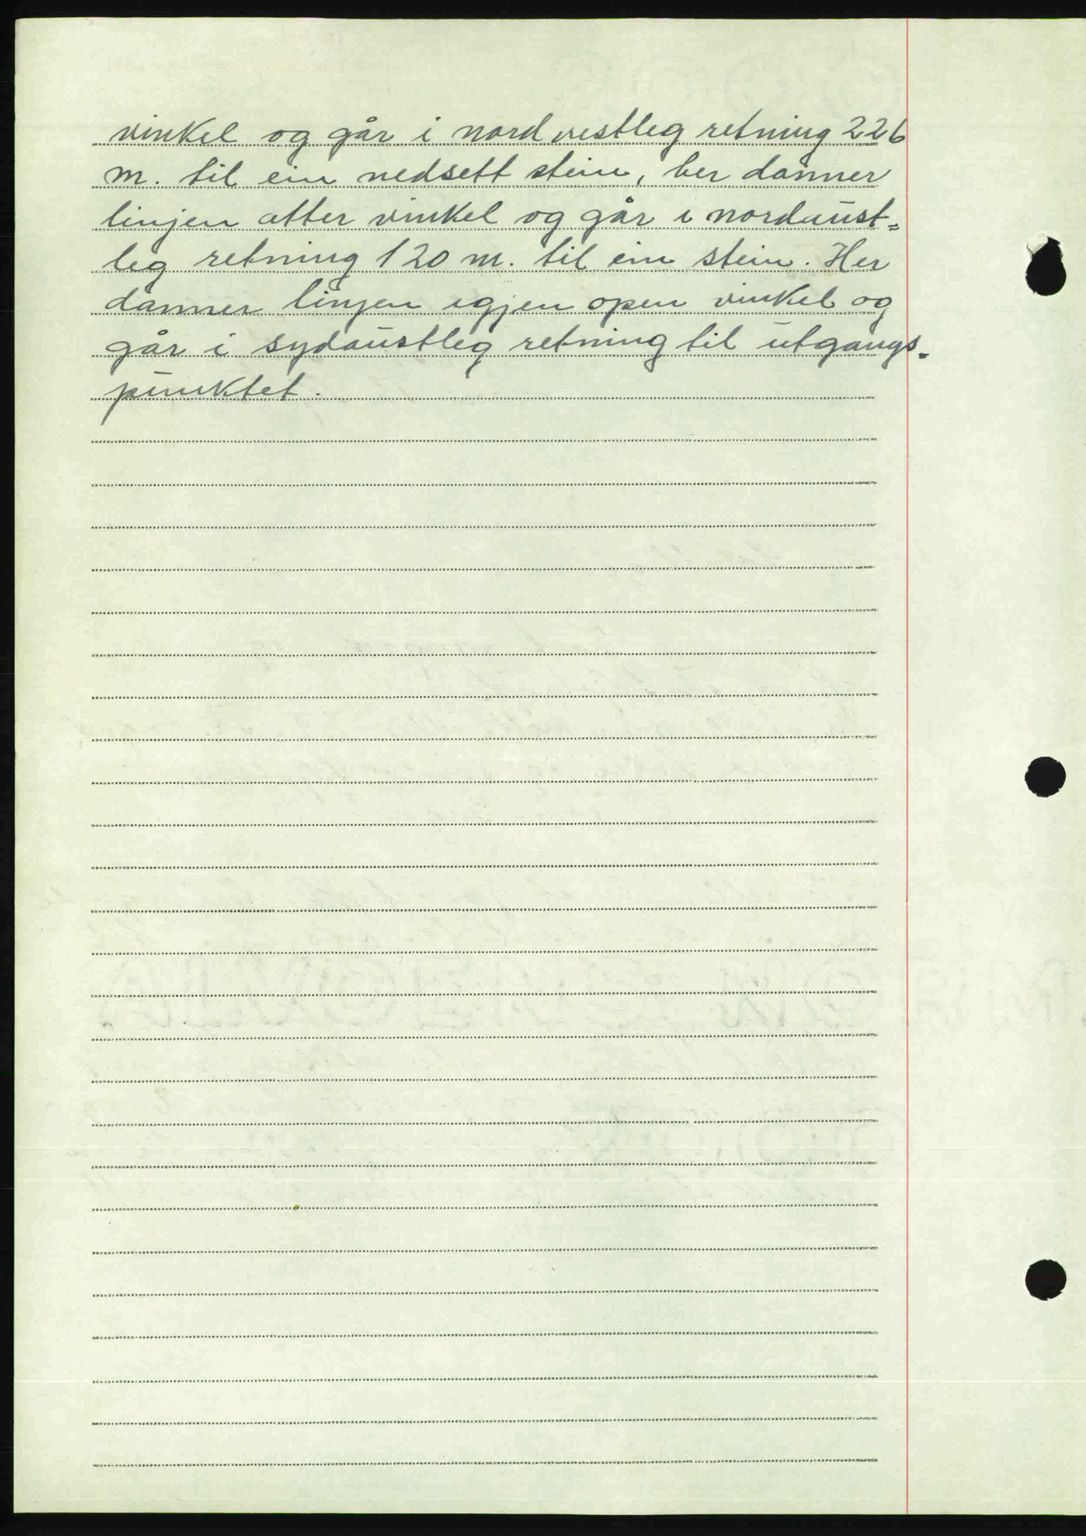 vinkel og går i nordvestleg retning 226
m. til ein nedsett stein, her danner
linjen atter vinkel og går i nordaust=
leg retning 120 m. til ein stein. Her
danner linjen igjen open vinkel og
går i sydaustleg retning til utgangs-
punktet.